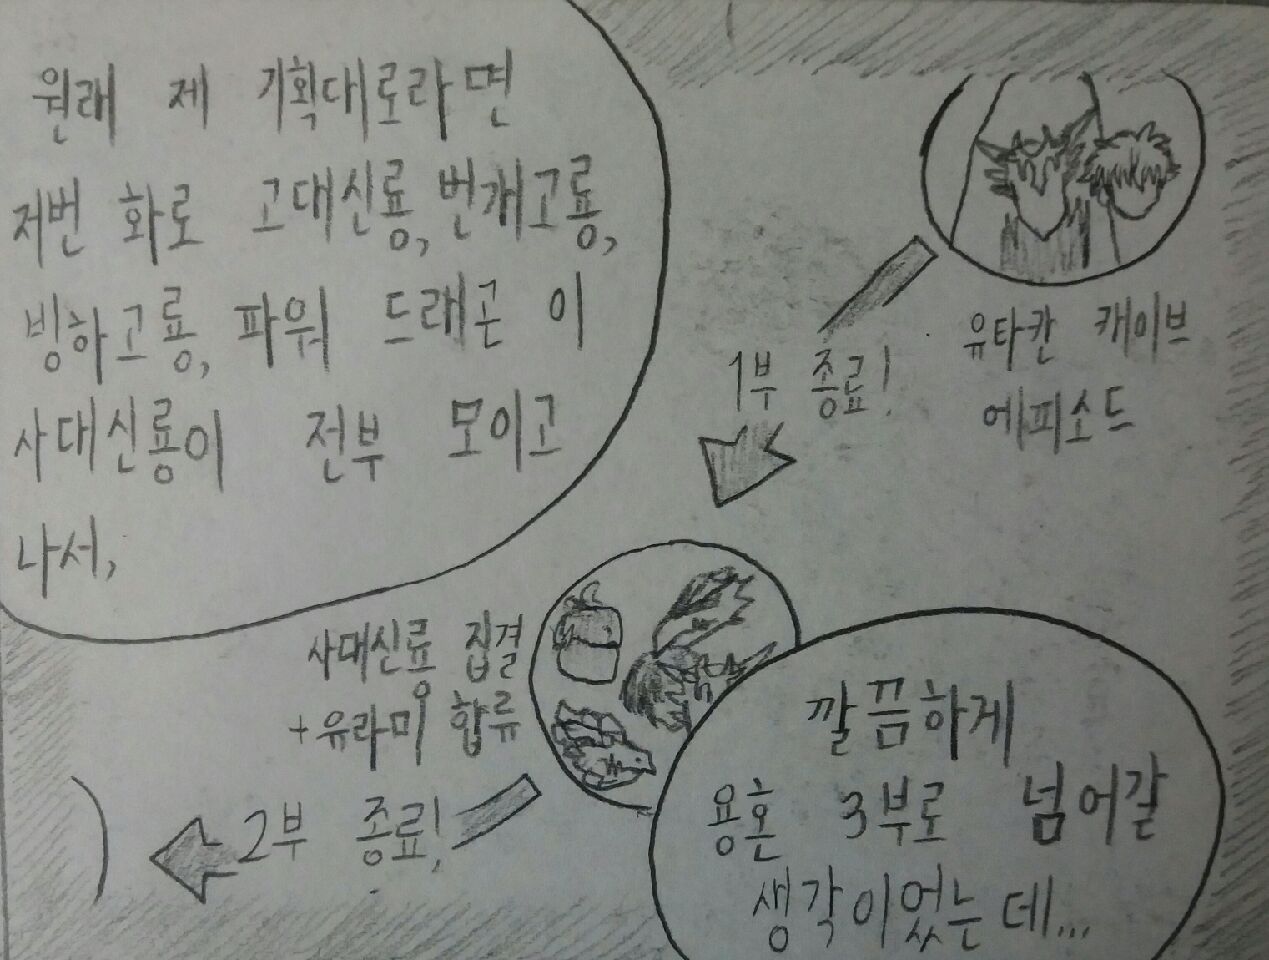 원래 제 기획대로라면
저번 화로 고대신룡, 번개고룡,
빙하고룡, 파워 드래곤 이
사대신룡이 전부 모이고
나서,
유타칸 캐이브
에피소드
1부 종료!
사대신룡 집결
+유라미 합류
2부 종료!
깔끔하게
용혼 3부로 넘어갈
생각이었는데...